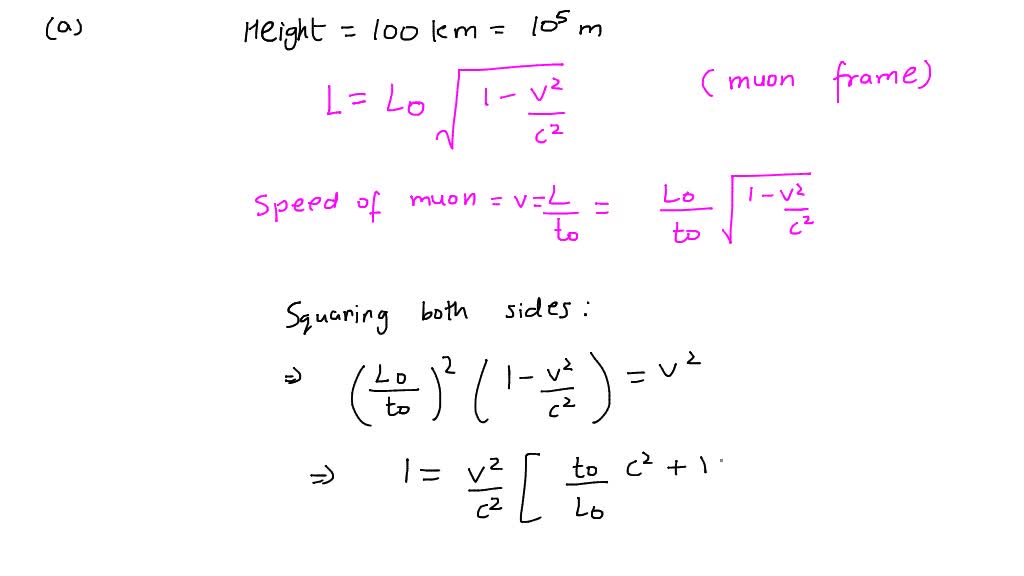 (a) Height = 100 km = 10⁵ m
L = L₀ √(1 - v²/c²) (muon frame)
Speed of muon = v = L/t₀ = L₀/t₀ √(1 - v²/c²)
Squaring both sides :
⇒ (L₀/t₀)² (1 - v²/c²) = v²
⇒ 1 = v²/c² [ t₀/L₀ c² + 1